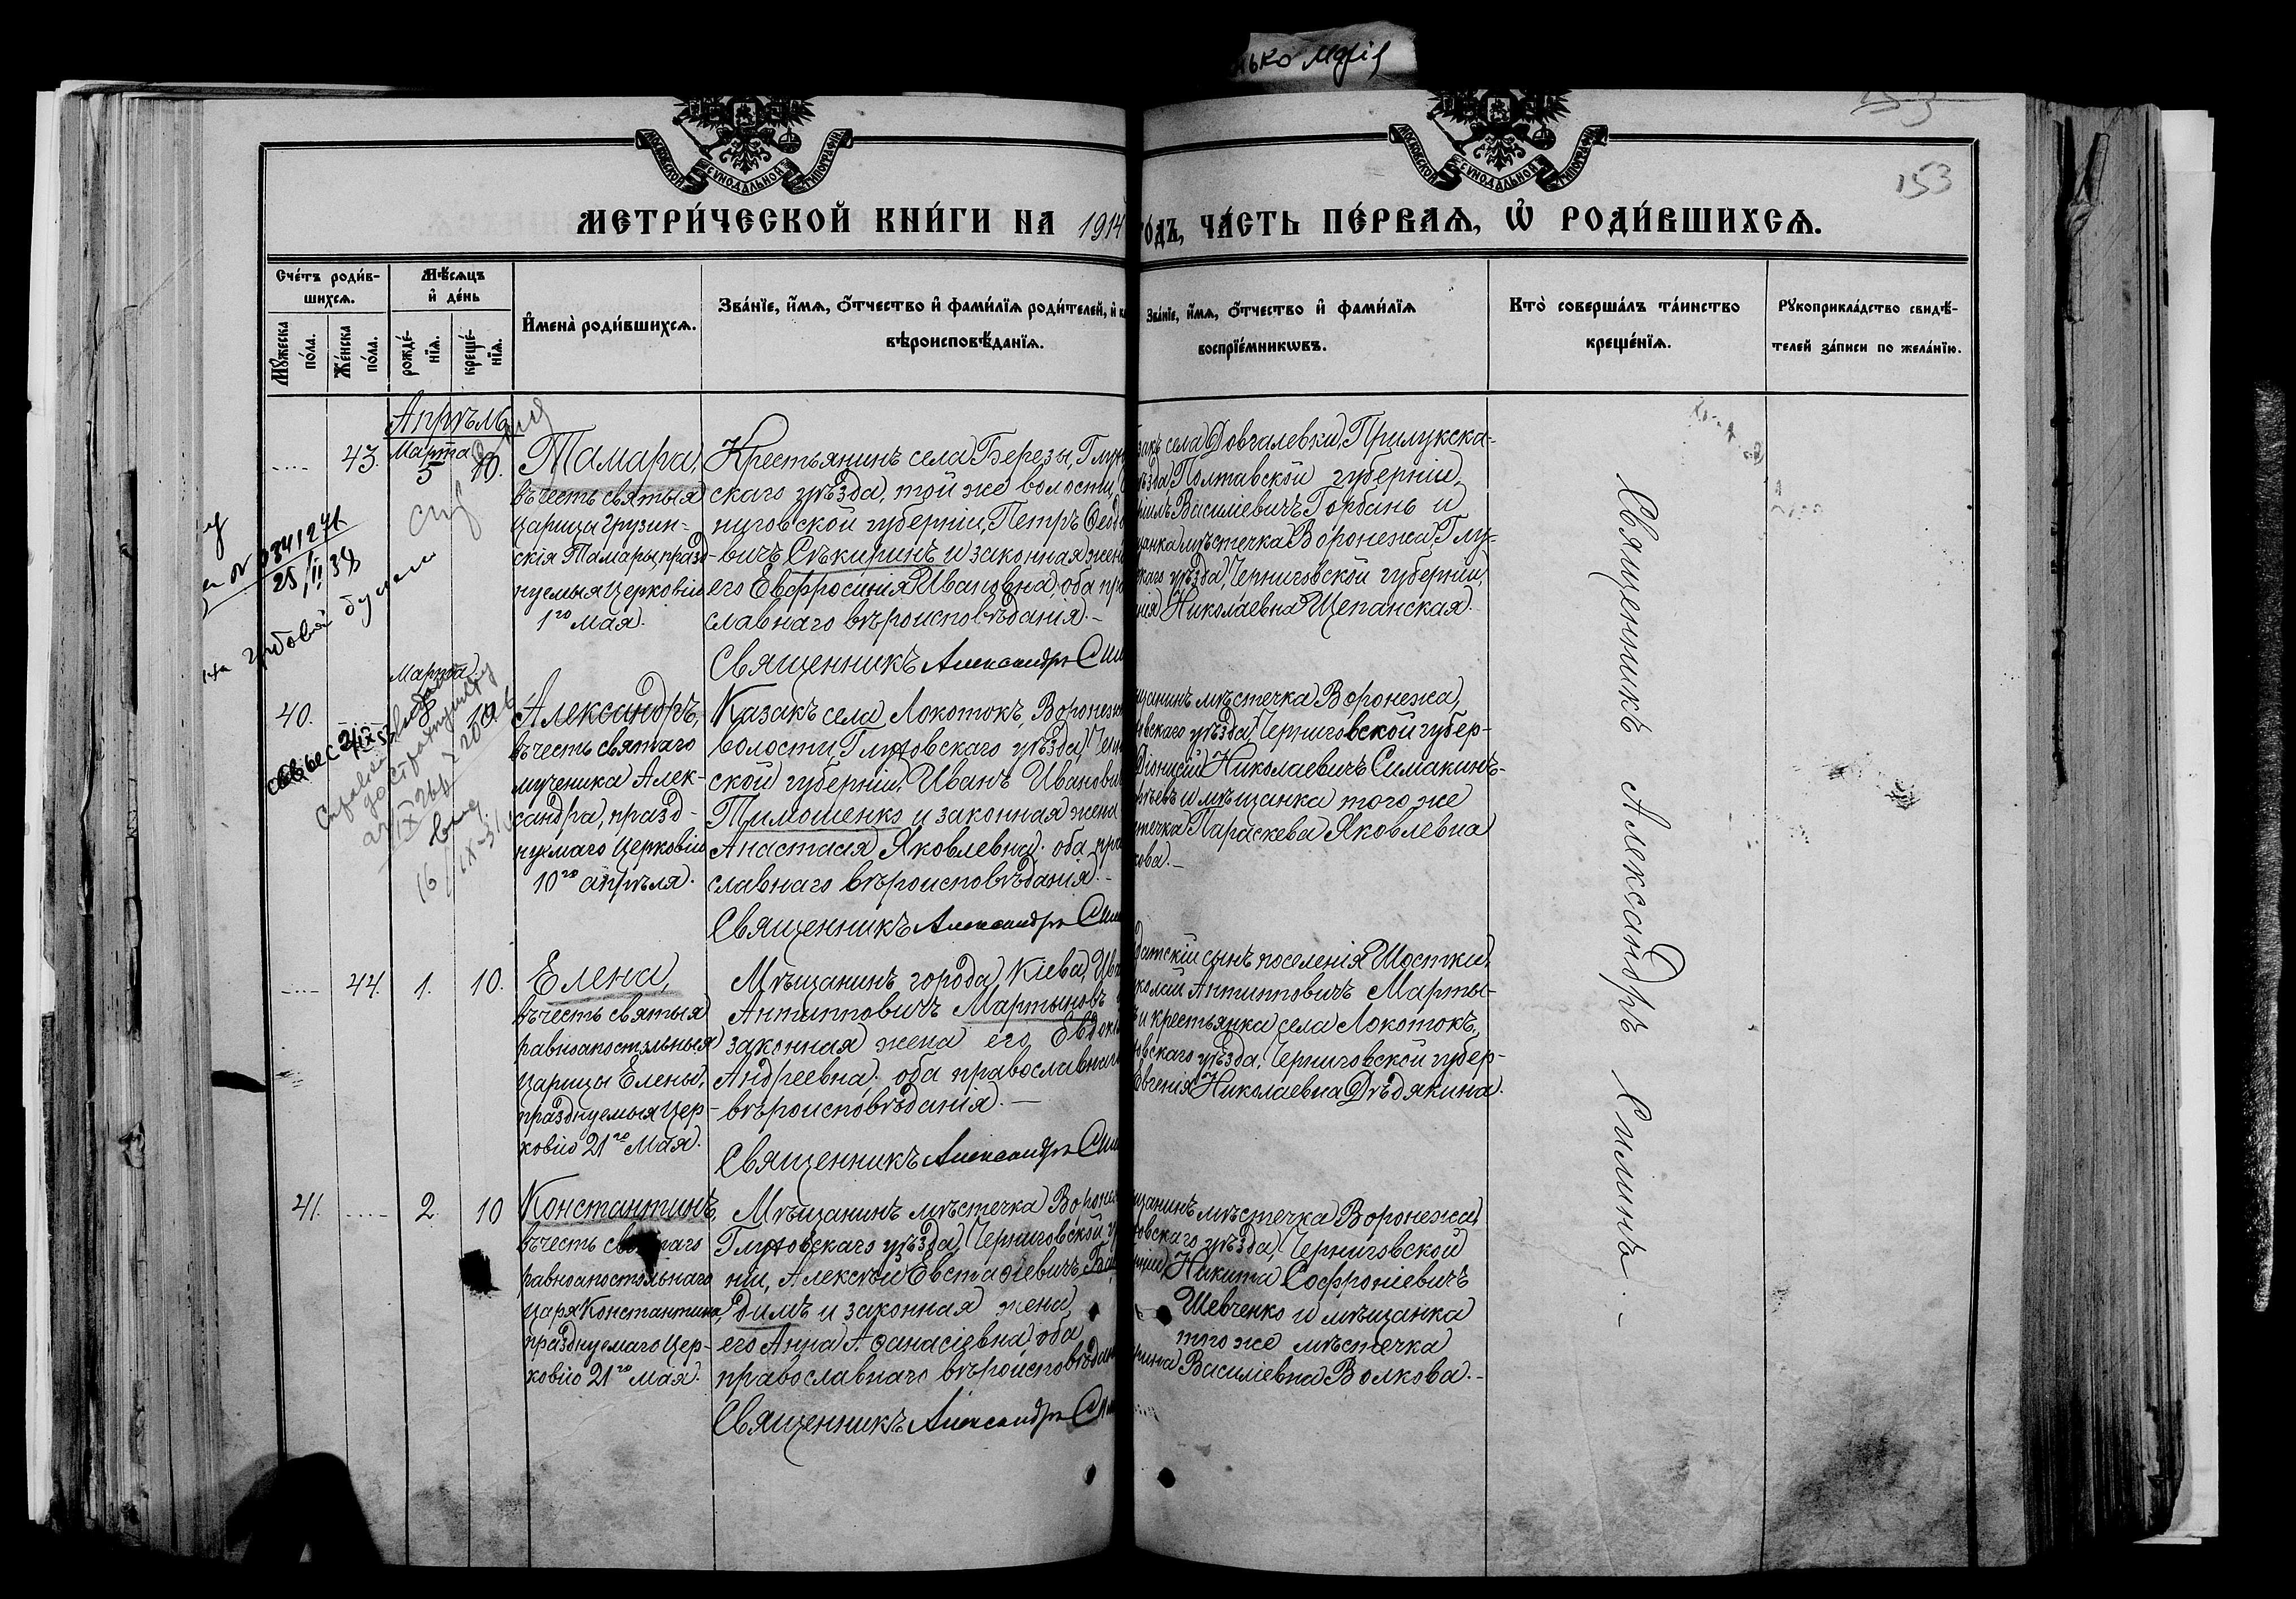 ько марія
МОСКОВСКОЙ СѴНОДАЛЬНОЙ ТИПОГРАФІИ
МОСКОВСКОЙ СѴНОДАЛЬНОЙ ТИПОГРАФІИ
153
МЕТРИ́ЧЕСКОЙ КНИ́ГИ НА 1914
го́дъ, ЧА́СТЬ ПЕ́РВАѦ, Ѿ РОДИ́ВШИХСѦ.
Сче́тъ роди́в-
шихсѧ.
Мꙋ́жеска по́ла.
Же́нска по́ла.
Мѣ́сѧцъ
и҆ де́нь
рожде́-
нїѧ.
креще́-
нїѧ.
И҆мена̀ роди́вшихсѧ.
Зва́нїе, и҆́мѧ, ѻ҆́тчество и҆ фами́лїѧ роди́телей, и҆ ка
вѣроисповѣ́данїѧ.
Зва́нїе, и҆́мѧ, ѻ҆́тчество и҆ фами́лїѧ
воспрїе́мникѡвъ.
Кто̀ соверша́лъ та́инство
креще́нїѧ.
Рꙋкоприкла́дство свидѣ́-
телей за́писи по жела́нїю.
Апрѣль
43. Марта 5 10.
Тамара,
въ честь святыя
царицы Грузин-
скія Тамары, празд-
нуемыя Церковію
1го мая.
Крестьянинъ села Березы, Глухов
скаго уѣзда, той же волости, Чер
ниговской губерніи, Петръ Ѳедо
вичъ Сѣкиринъ и законная жена
его Евфросинія Ивановна, оба пра
славнаго вѣроисповѣданія.-
Священникъ Александръ Сим
закъ села Довгалевки, Прилукска-
ѣзда, Полтавской губерніи,
рилъ Василіевичъ Горбань и
щанка мѣстечка Воронежа, Глу-
скаго уѣзда, Черниговской губерніи,
нія Николаевна Щепанская.
№ 0341274
25/II 39
на гербовой бумаге
40. Марта 10
Александръ,
въ честь святаго
мученика Алек-
сандра, празд-
нуемаго Церковію
10го апрѣля.
Казакъ села Локотокъ, Воронеж
волости Глуховскаго уѣзда, Черн
ской губерніи, Иванъ Иванови
Тимошенко и законная жена
Анастасія Яковлевна, оба пра
славнаго вѣроисповѣданія.-
Священникъ Александръ Сим
щанинъ мѣстечка Воронежа,
вскаго уѣзда, Черниговской губер-
Діонисій Николаевичъ Симакинъ-
ѣевъ и мѣщанка того же
течка Параскева Яковлевна
кова.-
44. 1. 10.
Елена,
въ честь святыя
равноапостольныя
царицы Елены,
празднуемыя Цер-
ковію 21го Мая.
Мѣщанинъ города Кіева, Ив
Антипповичъ Мартыновъ
законная жена его Евдокі
Андреевна, оба православнаго
вѣроисповѣданія.-
Священникъ Александръ Сим
датскій сынъ поселенія Шостки,
колай Антипповичъ Марты-
и крестьянка села Локотокъ,
вскаго уѣзда, Черниговской губер-
Евгенія Николаевна Дѣдякина.
41. 2. 10
Константинъ,
въ честь святаго
равноапостольнаго
царя Константина,
празднуемаго Цер-
ковію 21го мая.
Мѣщанинъ мѣстечка Вороне
Глуховскаго уѣзда, Черниговской гу
ніи, Алексѣй Евстафіевичъ Ба
димъ и законная жена
его Анна Аѳанасіевна, оба
православнаго вѣроисповѣдан
Священникъ Александръ Сим
щанинъ мѣстечка Воронежа,
овскаго уѣзда, Черниговской
рніи, Никита Софроніевичъ
Шевченко и мѣщанка
того же мѣстечка
рина Василіевна Волкова.-
Священникъ Александръ Симинъ.-